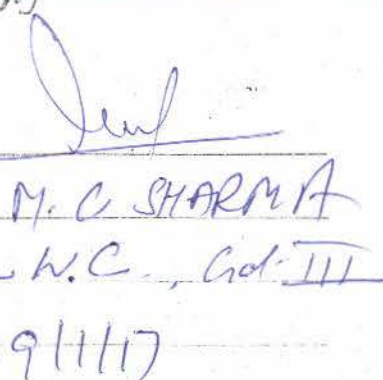 M. C SHARMA
W.C., Gd-III
9/1/17